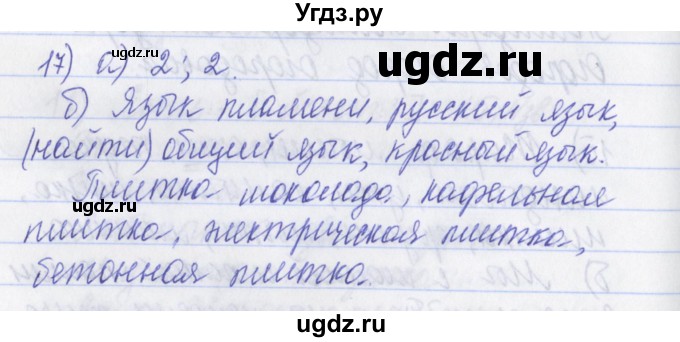 Угдз.ру
17) а) 2; 2.
б) Язык пламени, русский язык,
(найти) общий язык, красный язык.
Плитка шоколада, кафельная
плитка, электрическая плитка,
бетонная плитка.
ugdz.ru
ugdz.ru
ugdz.ru
ugdz.ru
ugdz.ru